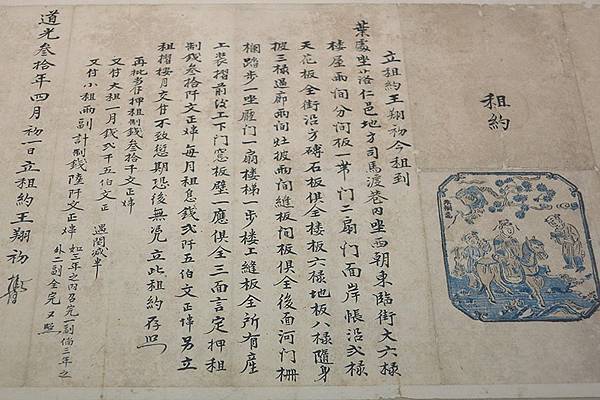 租約
立租約王翔初今租到
葉處坐落仁邑地方司馬渡巷內坐西朝東臨街大六樣
樓屋兩間分間板一、門二扇門面岸帳沿弍樣
天花板全街沿方磚石板俱全樓板六樣地板八樣隨身
披三樣過廊兩間灶披兩間縫板間板俱全後面河門柵
欄踏步一座廳門一扇樓梯一步樓工縫板全所有產
工裝摺前後工下門窓板壁一應俱全三面言定押租
制錢叁拾阡文正焯每月租息錢弍阡五伯文正焯另立
租摺按月交付不致愆期恐後無凴立此租約存照
再批當付押租制錢叁拾千文正焯
又付大租一月錢弍千五伯文正 遇閏減半
又付小租兩副計制錢陸阡文正焯 如三年之內召完一副倘三年之
外二副全完又照
道光叁拾年四月初一日立租約王翔初